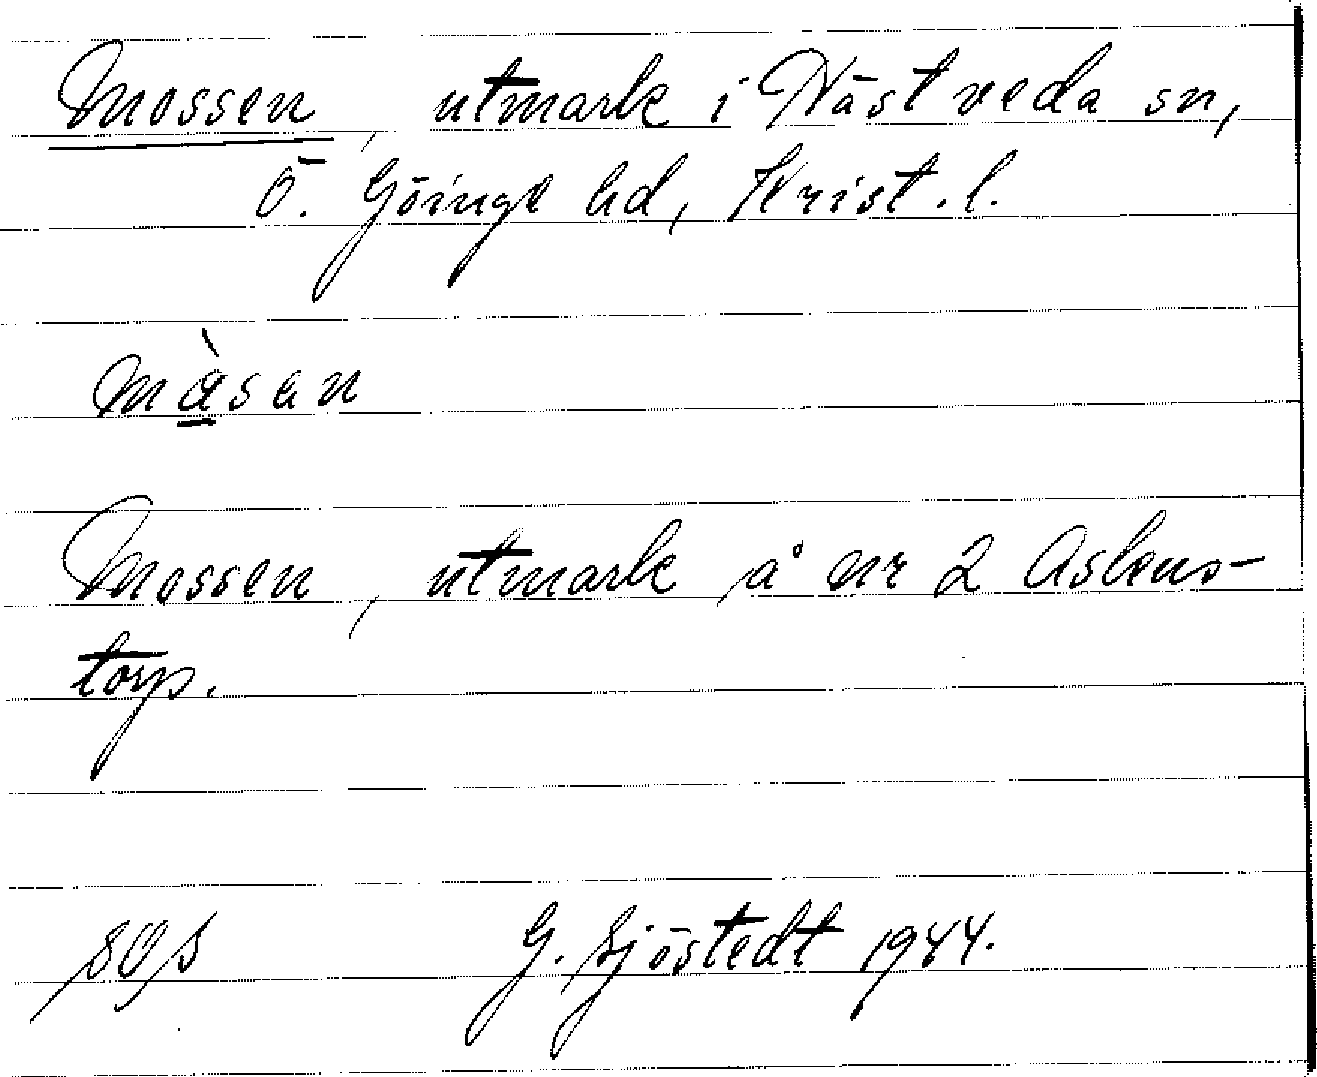 Mossen, utmark i Nästveda sn,
Ö. Göinge hd, Krist. l.
màsan
Mossen, utmark å nr 2 Askens-
torp.
G. Sjöstedt 1944.